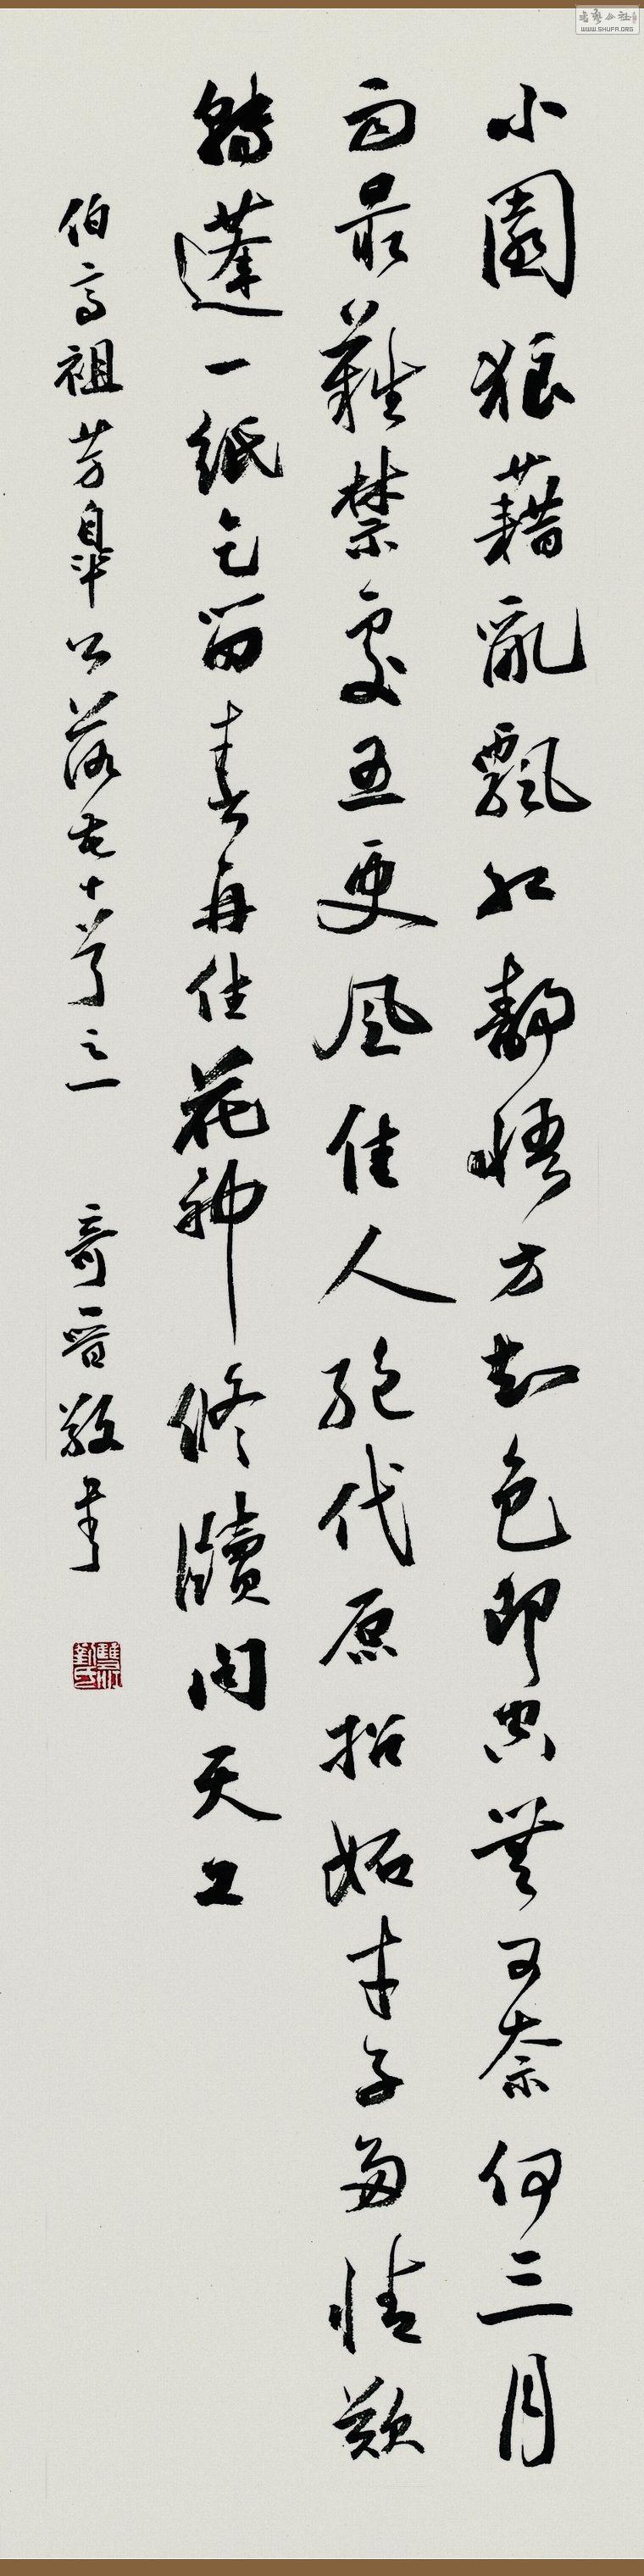 小園狼藉亂飄紅靜悟方知色即空無可奈何三月
雨最難禁處五更風佳人絕代原招妬才子多情歎
轉蓬一紙乞留春再住花神修牘問天工
伯高祖芳皋公落花十首之一 奇晋敬书
WWW.SHUFA.ORG